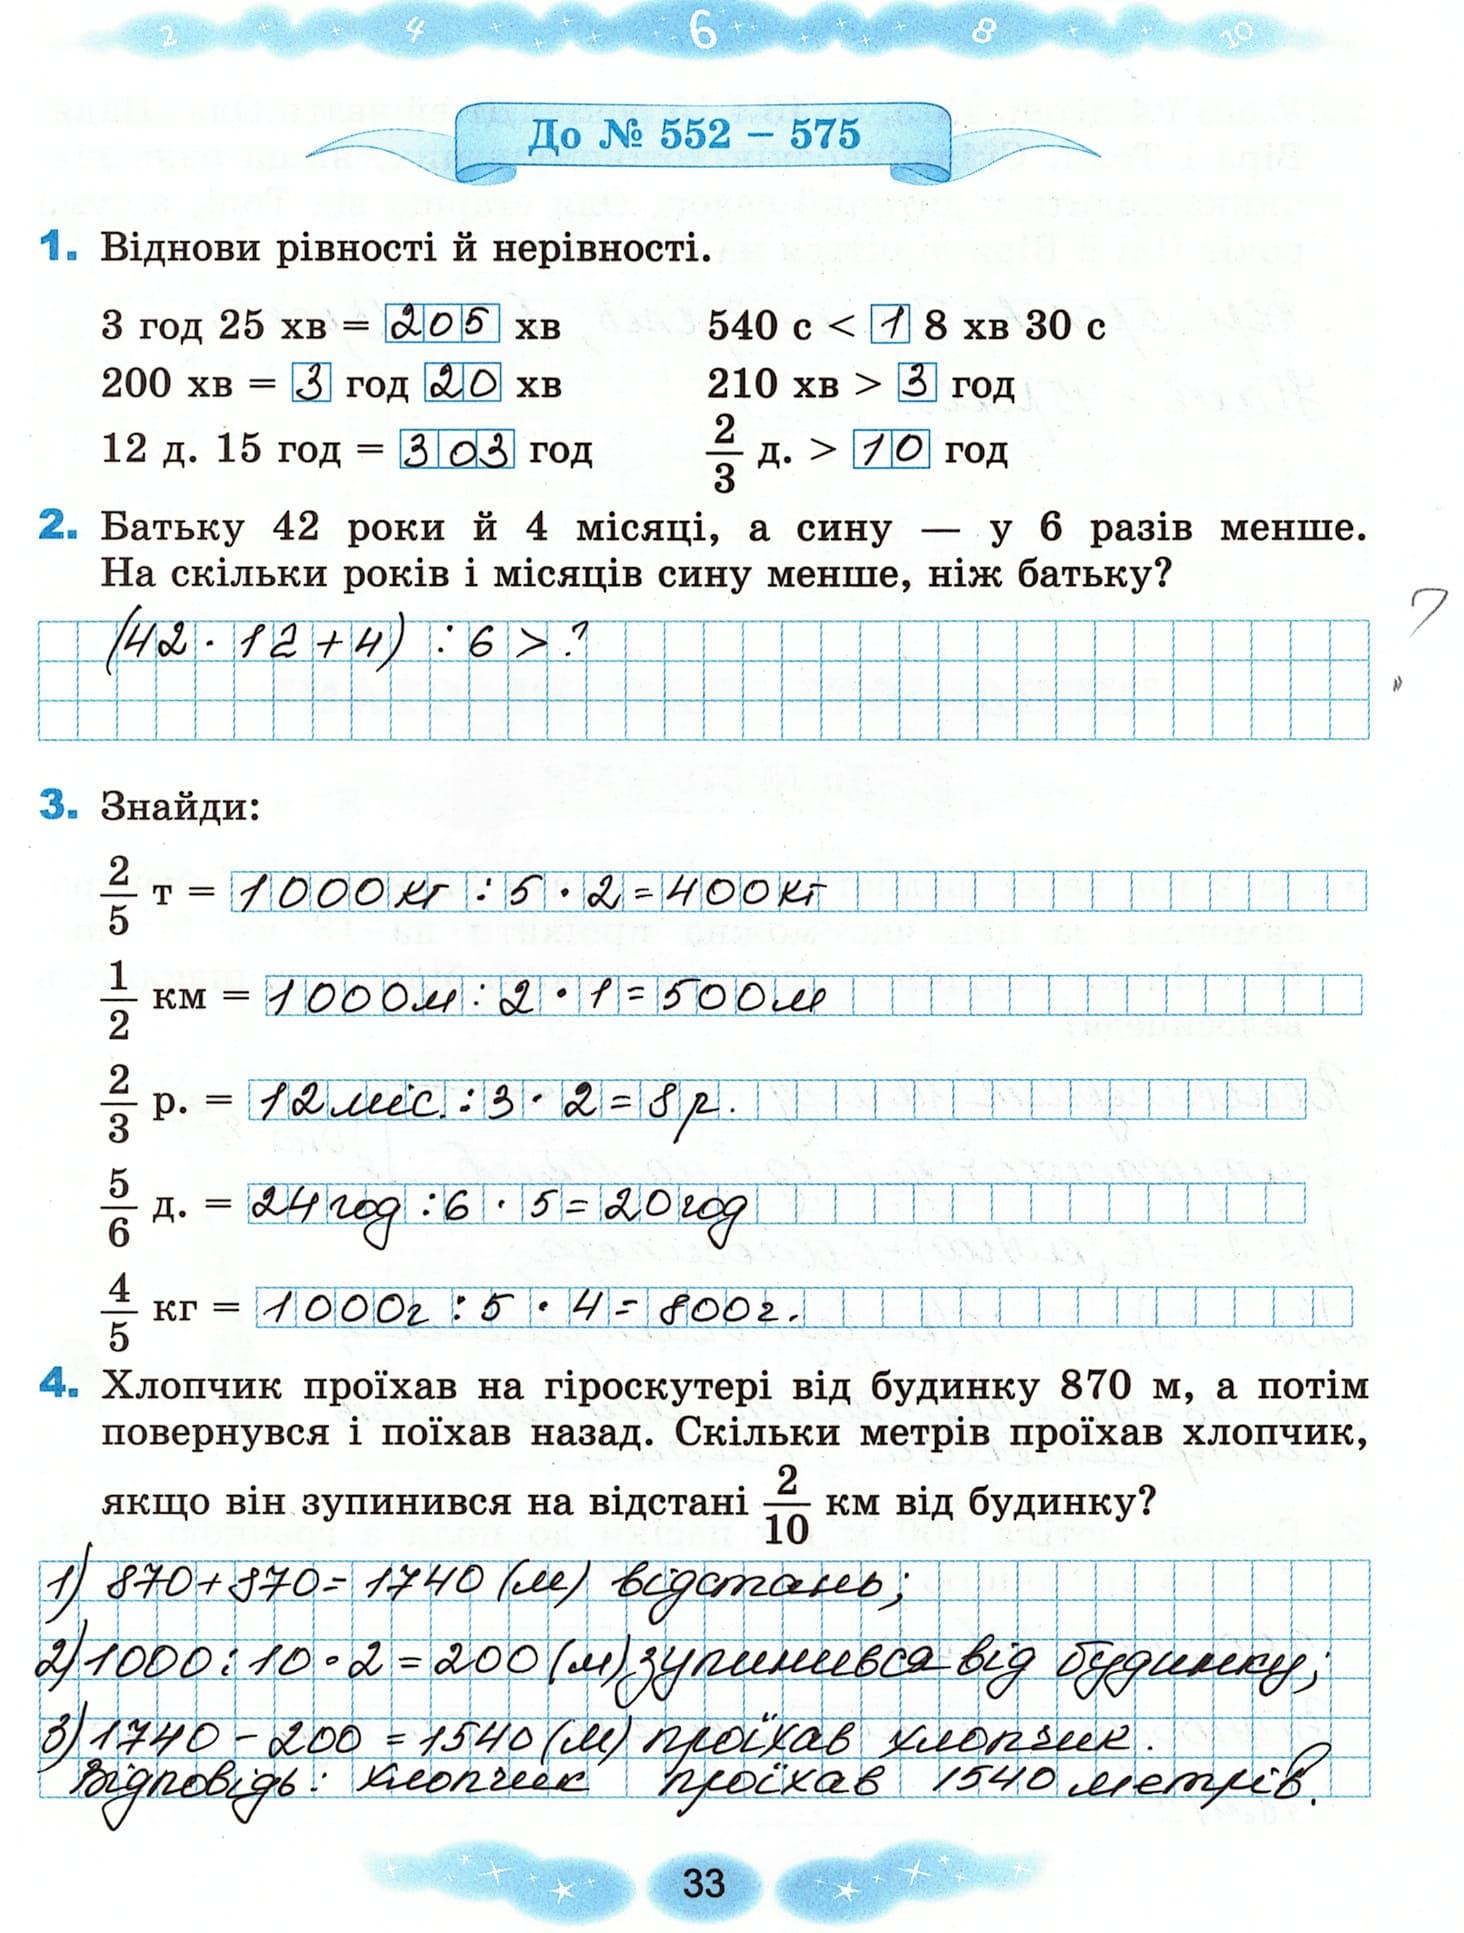 2 4 6 8 10
До № 552 – 575
1. Віднови рівності й нерівності.
3 год 25 хв = 205 хв 540 с < 1 8 хв 30 с
200 хв = 3 год 20 хв 210 хв > 3 год
12 д. 15 год = 303 год 2/3 д. > 10 год
2. Батьку 42 роки й 4 місяці, а сину — у 6 разів менше.
На скільки років і місяців сину менше, ніж батьку?
(42 · 12 + 4) : 6 > ?
?
3. Знайди:
2/5 т = 1000кг : 5 · 2 = 400кг
1/2 км = 1000м : 2 · 1 = 500м
2/3 р. = 12 міс. : 3 · 2 = 8 р.
5/6 д. = 24 год : 6 · 5 = 20 год
4/5 кг = 1000г : 5 · 4 = 800г.
4. Хлопчик проїхав на гіроскутері від будинку 870 м, а потім
повернувся і поїхав назад. Скільки метрів проїхав хлопчик,
якщо він зупинився на відстані 2/10 км від будинку?
1) 870 + 870 = 1740 (м) відстань;
2) 1000 : 10 · 2 = 200 (м) зупинився від будинку;
3) 1740 – 200 = 1540 (м) проїхав хлопчик.
Відповідь: хлопчик проїхав 1540 метрів.
33